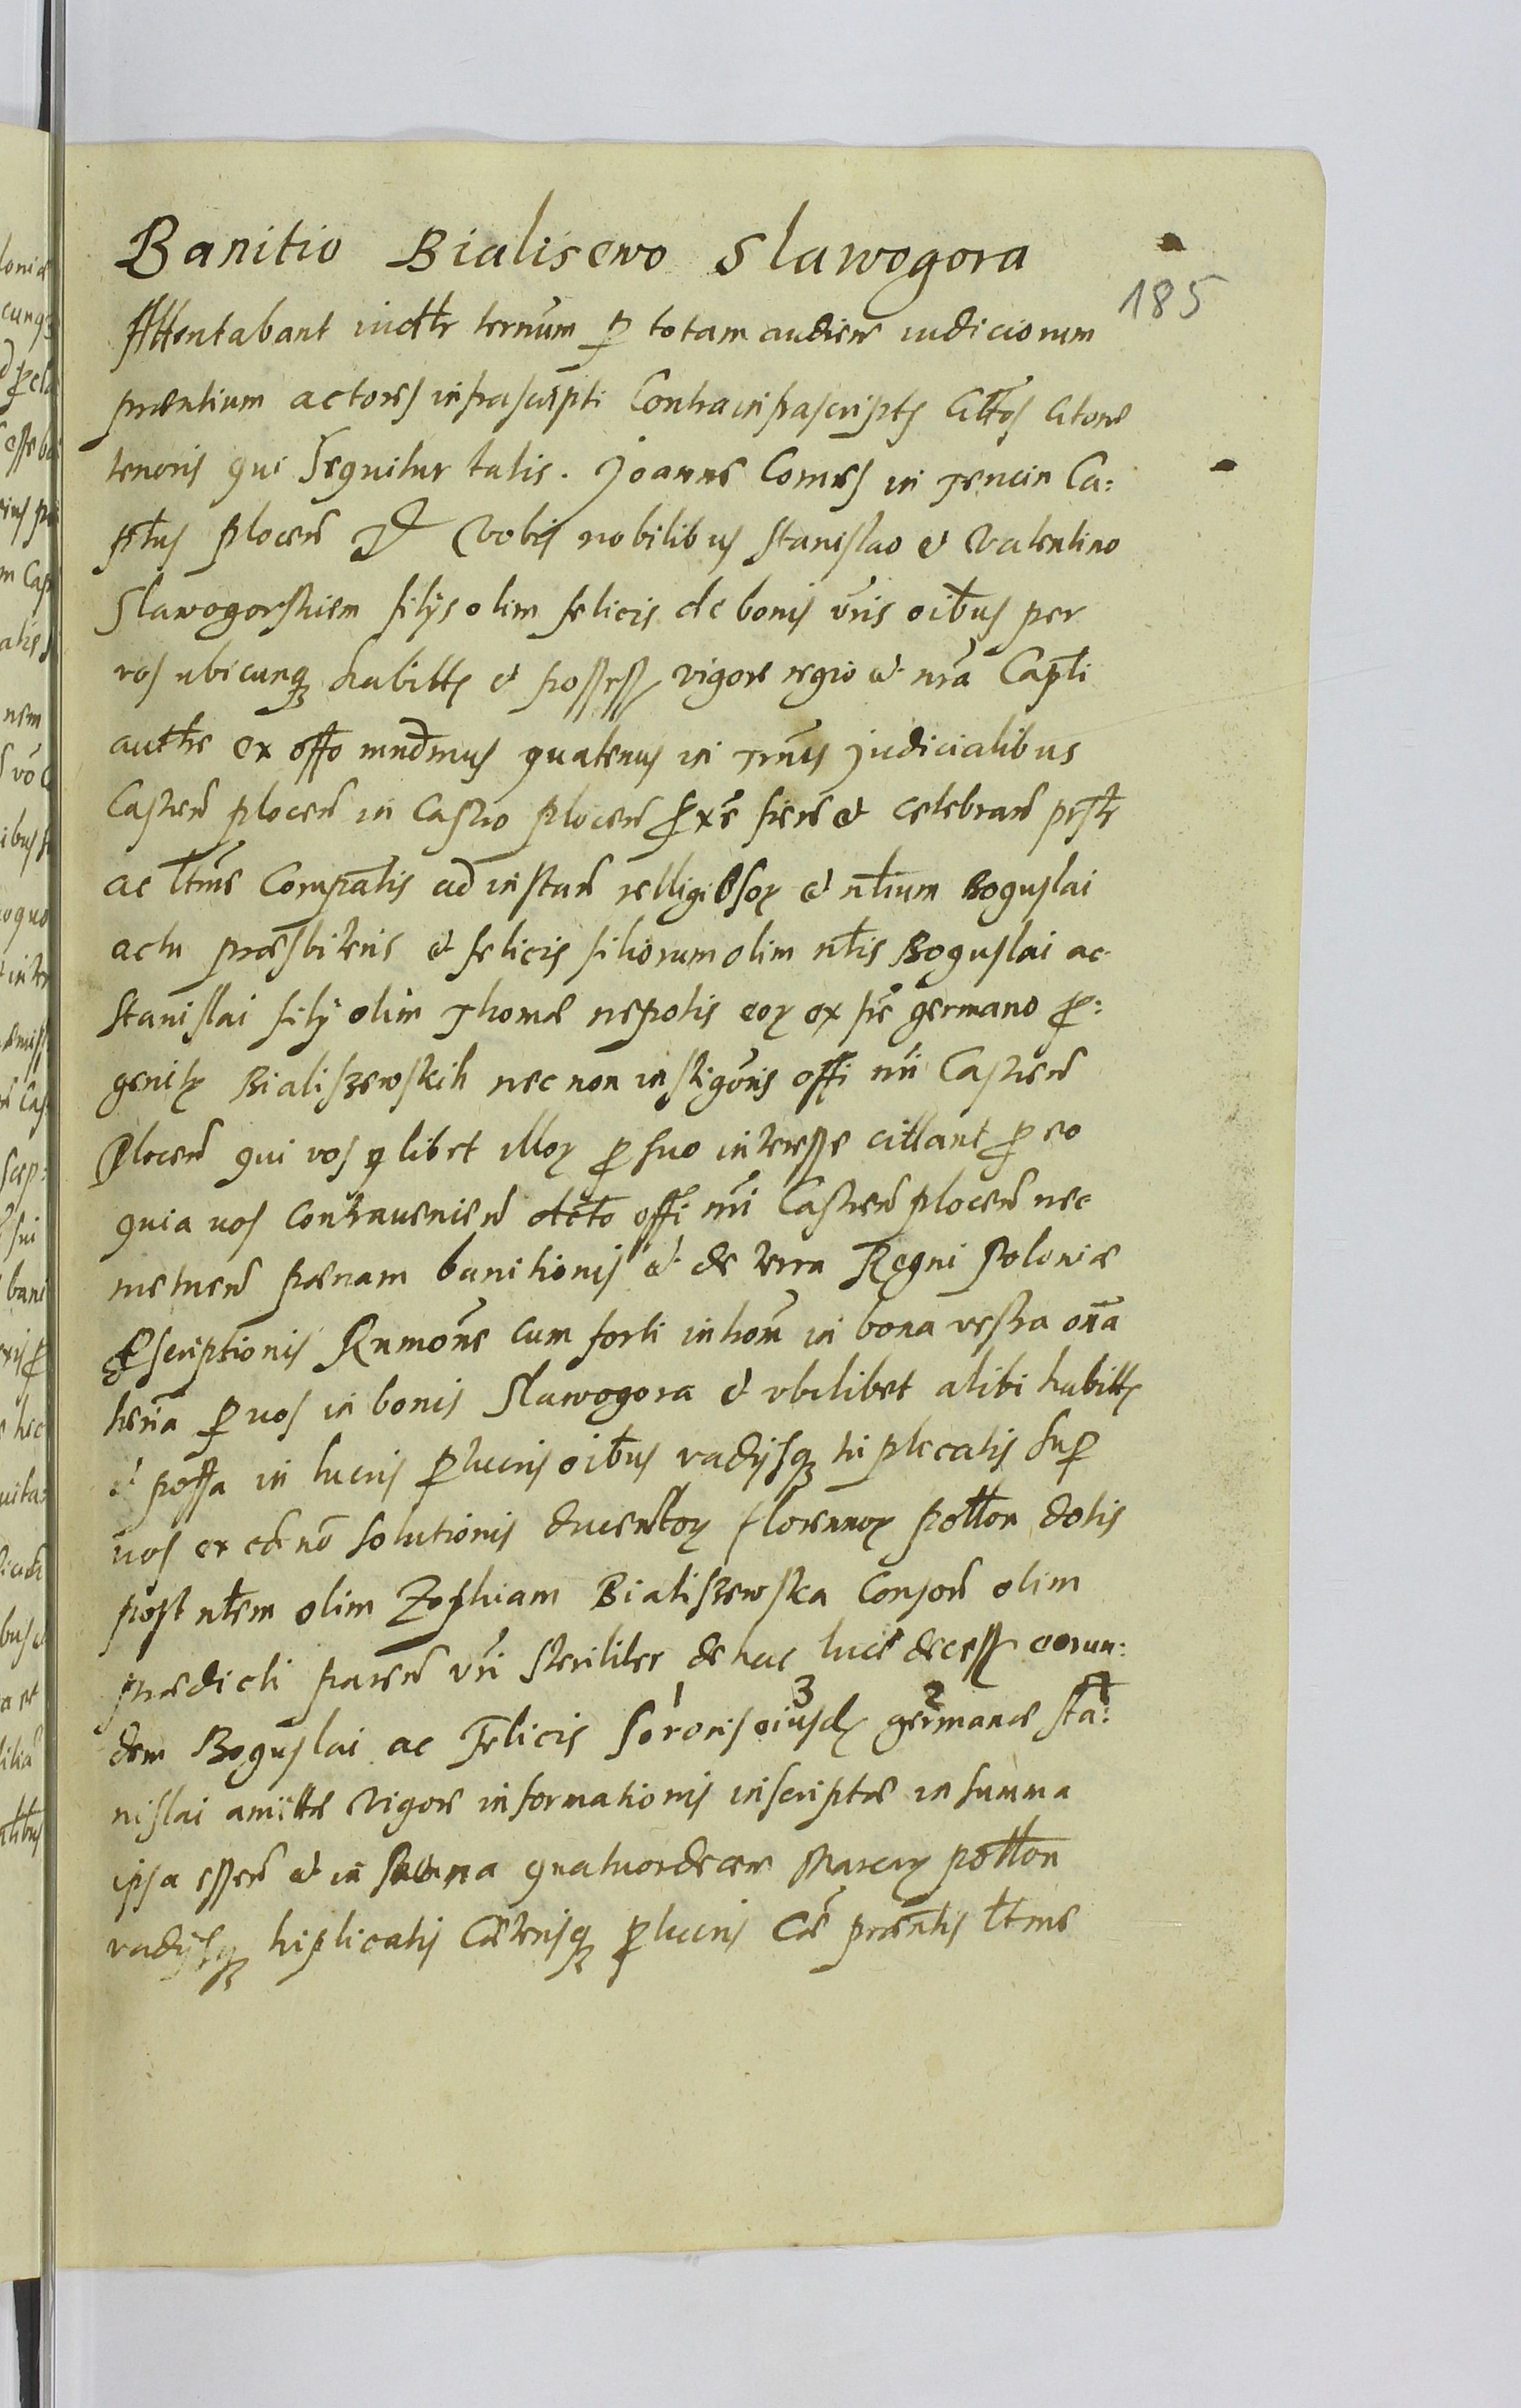 Banitio Bialisewo Slawogora
185
Attentabant iudtr ternum p totam audien iudiciorum
præntium actores infrascripti Contra infrascriptos Cittos Citone
tenoris qui sequitur talis. Joannes Comes in Tencin Ca:
ptus plocen Vobis nobilibus Stanislao et Valentino
Slawogorskiem filijs olim felicis de bonis vris oibus per
vos ubicunq habitis et possess vigore regio et nra Capti
autthe ex offo mndmus quatenus in Trnis Judicialibus
Castren plocen in Castro plocen pxe fien et celebran prstr
ac ltme Compatis ad instan relligiosor et nlium Boguslai
actu præsbiteris et felicis filiorum olim nlis Boguslai ac
Stanislai filij olim Thomæ nepotis eor ex fre germano p:
genitr Bialiszewskih nec non instigoris offi nri Castren
Plocen qui vos qlibet illor p suo interesse cittant p eo
quia vos contravenien dcto offi nri Castren plocen nec
metuen pænam banitionis et de terra Regni Poloniæ
pscriptionis Rumone cum forti introm in bona vestra oia
heria p vos in bonis Slawogora et vbilibet alibi habitis
et possa in lucris plucris oibus vadijsq triplicatis sup
vos ex cdno solutionis ducentor florenor pollon dotis
post nlem olim Zophiam Bialiszewska Conson olim
prædicti paren vri steriliter de hac luce decess eorun:
dem Boguslai ac Felicis 1 sororis 3 eiusd 2 germanæ Sta:
nislai amittæ vigore informationis inscriptæ in summa
ipsa essen et in summa quatuordecem Marcar pollon
vadijsq triplicatis Cæterisq plucris Cæ prænlis ltme